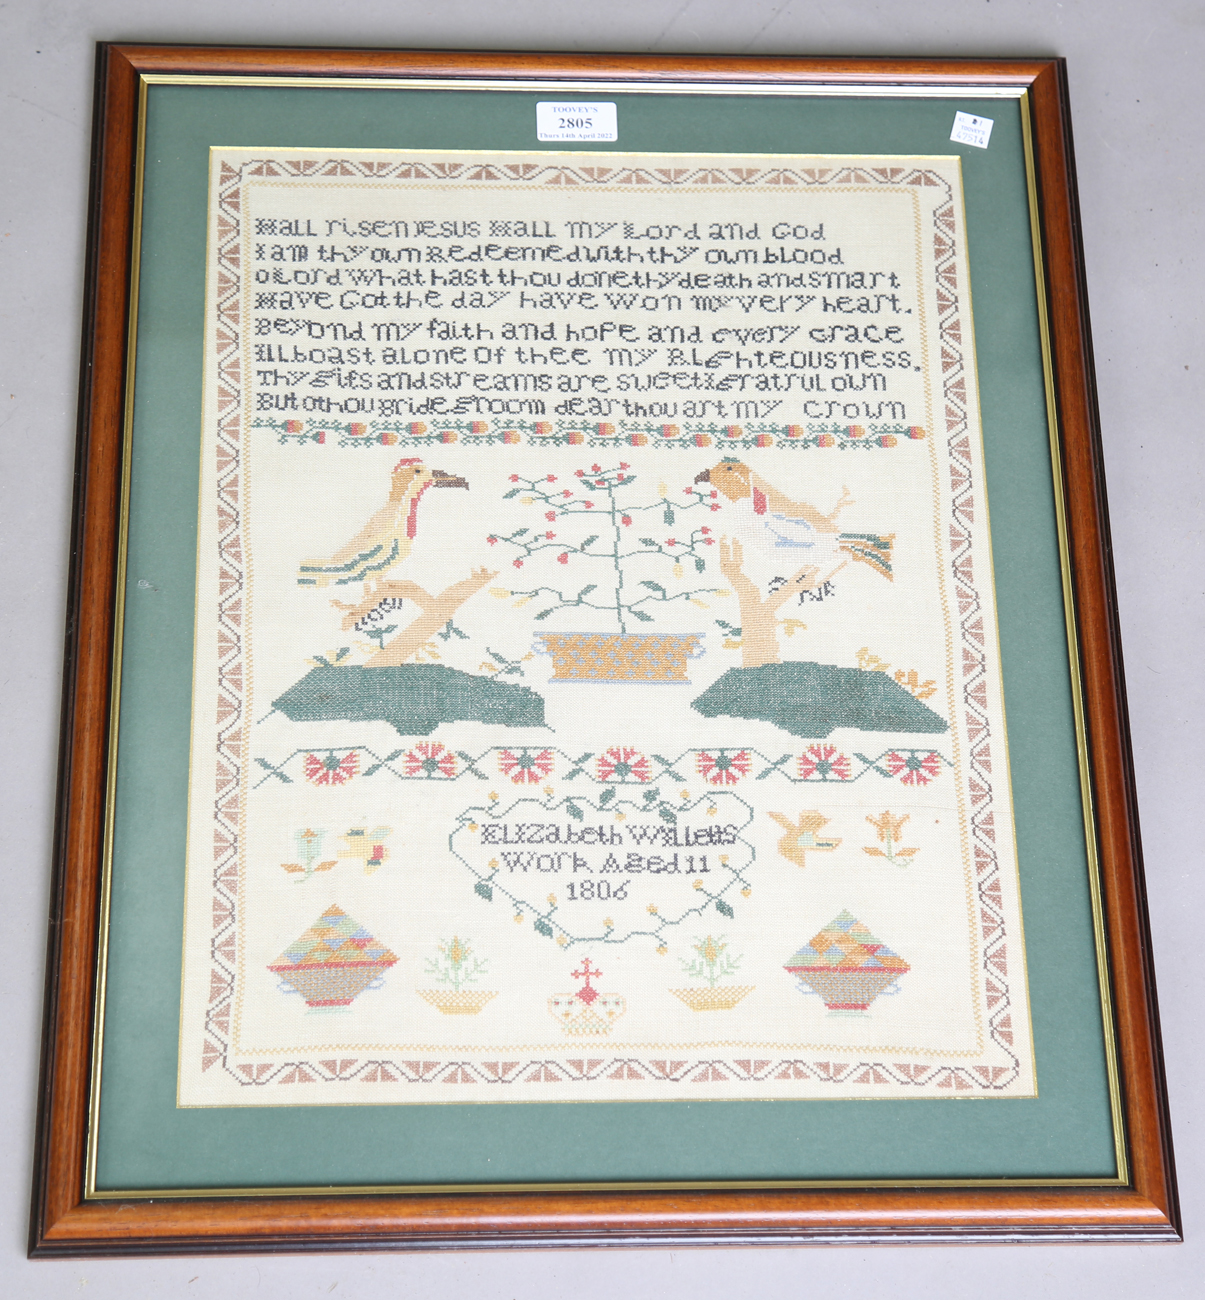 TOOVEY'S
2805
Thurs 14th April 2022
TOOVEY'S
47514
Hail risen Jesus Hail my Lord and God
I am thy own Redeemed With thy own blood
o Lord What hast thou done thy death and smart
Have Gott he day have Won my very heart.
Beyond my faith and hope and every Grace
Ill boast alone Of thee my Righteousness.
Thy Gifs and streams are sweet
own
But o thou Bride Groom dear thou art my crown
Elizabeth Willetts
Work Aged 11
1806